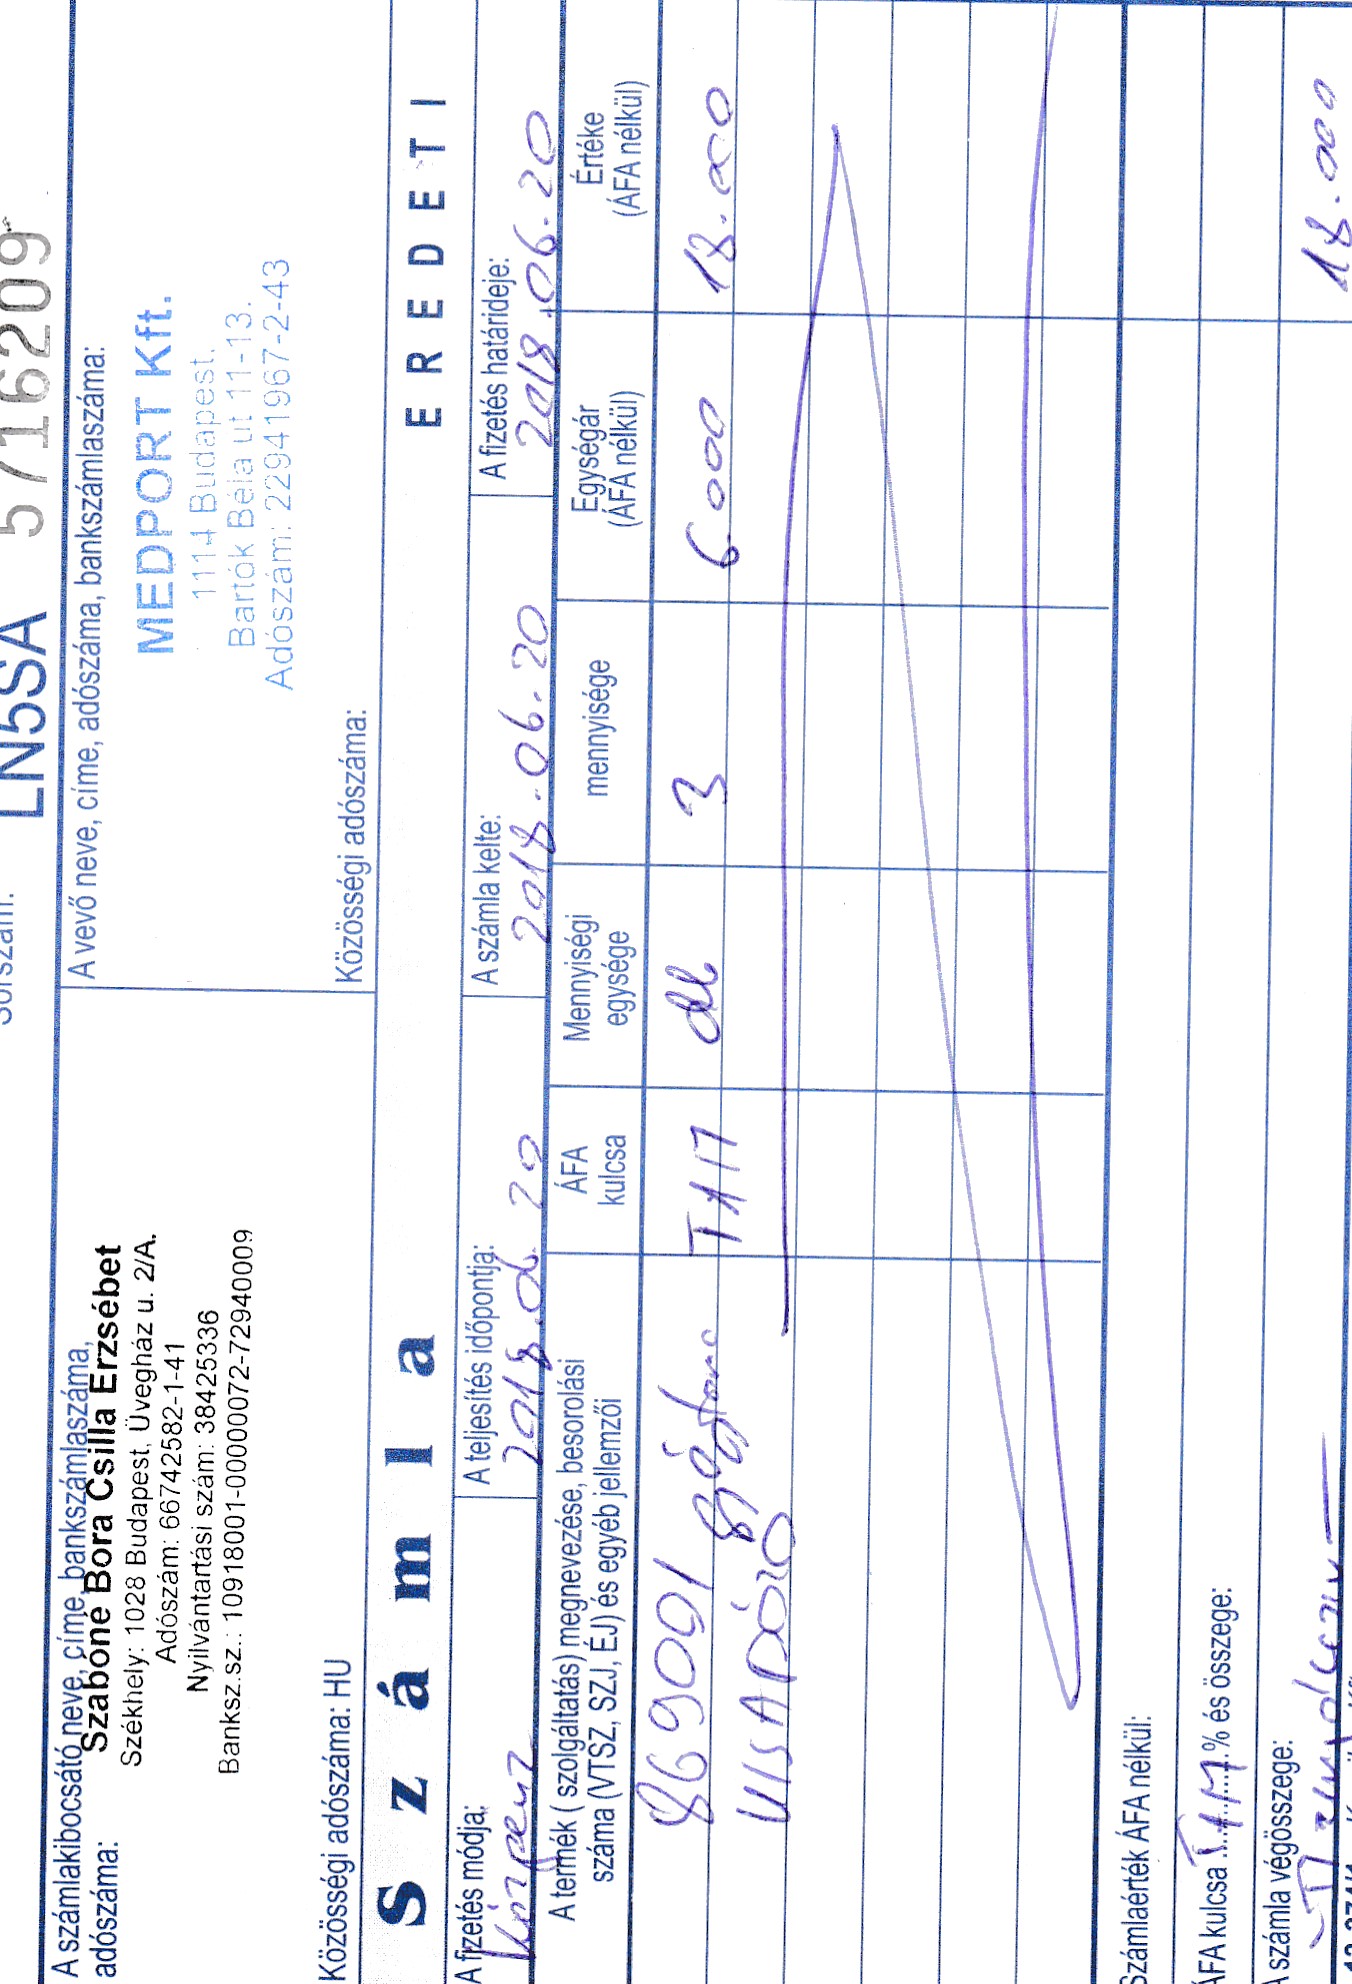 LN5SA 5716209
A számlakibocsátó neve, címe, bankszámlaszáma,
adószáma:
Szabóné Bora Csilla Erzsébet
Székhely: 1028 Budapest, Üvegház u. 2/A.
Adószám: 66742582-1-41
Nyilvántartási szám: 38425336
Banksz.sz.: 10918001-00000072-72940009
Közösségi adószáma: HU
A vevő neve, címe, adószáma, bankszámlaszáma:
MEDPORT Kft.
1114 Budapest.
Bartók Béla út 11-13.
Adószám: 22941967-2-43
Közösségi adószáma:
Számla
EREDETI
A fizetés módja:
A teljesítés időpontja:
2018.06.20
A számla kelte:
2018.06.20
A fizetés határideje:
2018.06.20
A termék (szolgáltatás) megnevezése, besorolási
száma (VTSZ, SZJ, ÉJ) és egyéb jellemzői
ÁFA
kulcsa
Mennyiségi
egysége
mennyisége
Egységár
(ÁFA nélkül)
Értéke
(ÁFA nélkül)
869091 TAM db 3 6000 18.000
Számlaérték ÁFA nélkül:
ÁFA kulcsa TAM % és összege:
A számla végösszege:
18.000